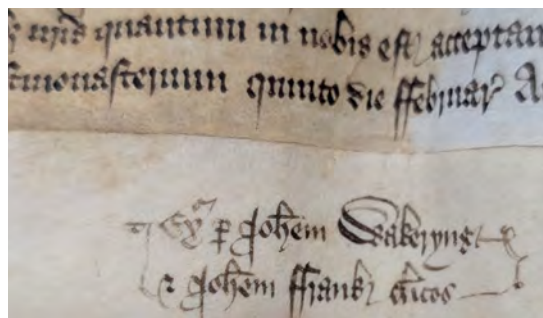 nr̃is quantum in nobis est acceptam
stmonasterium quinto die ffebruar̃ A
Exᵃ p Joh̃em Wakeryng
⁊ Joh̃em ffrank cl̃icos